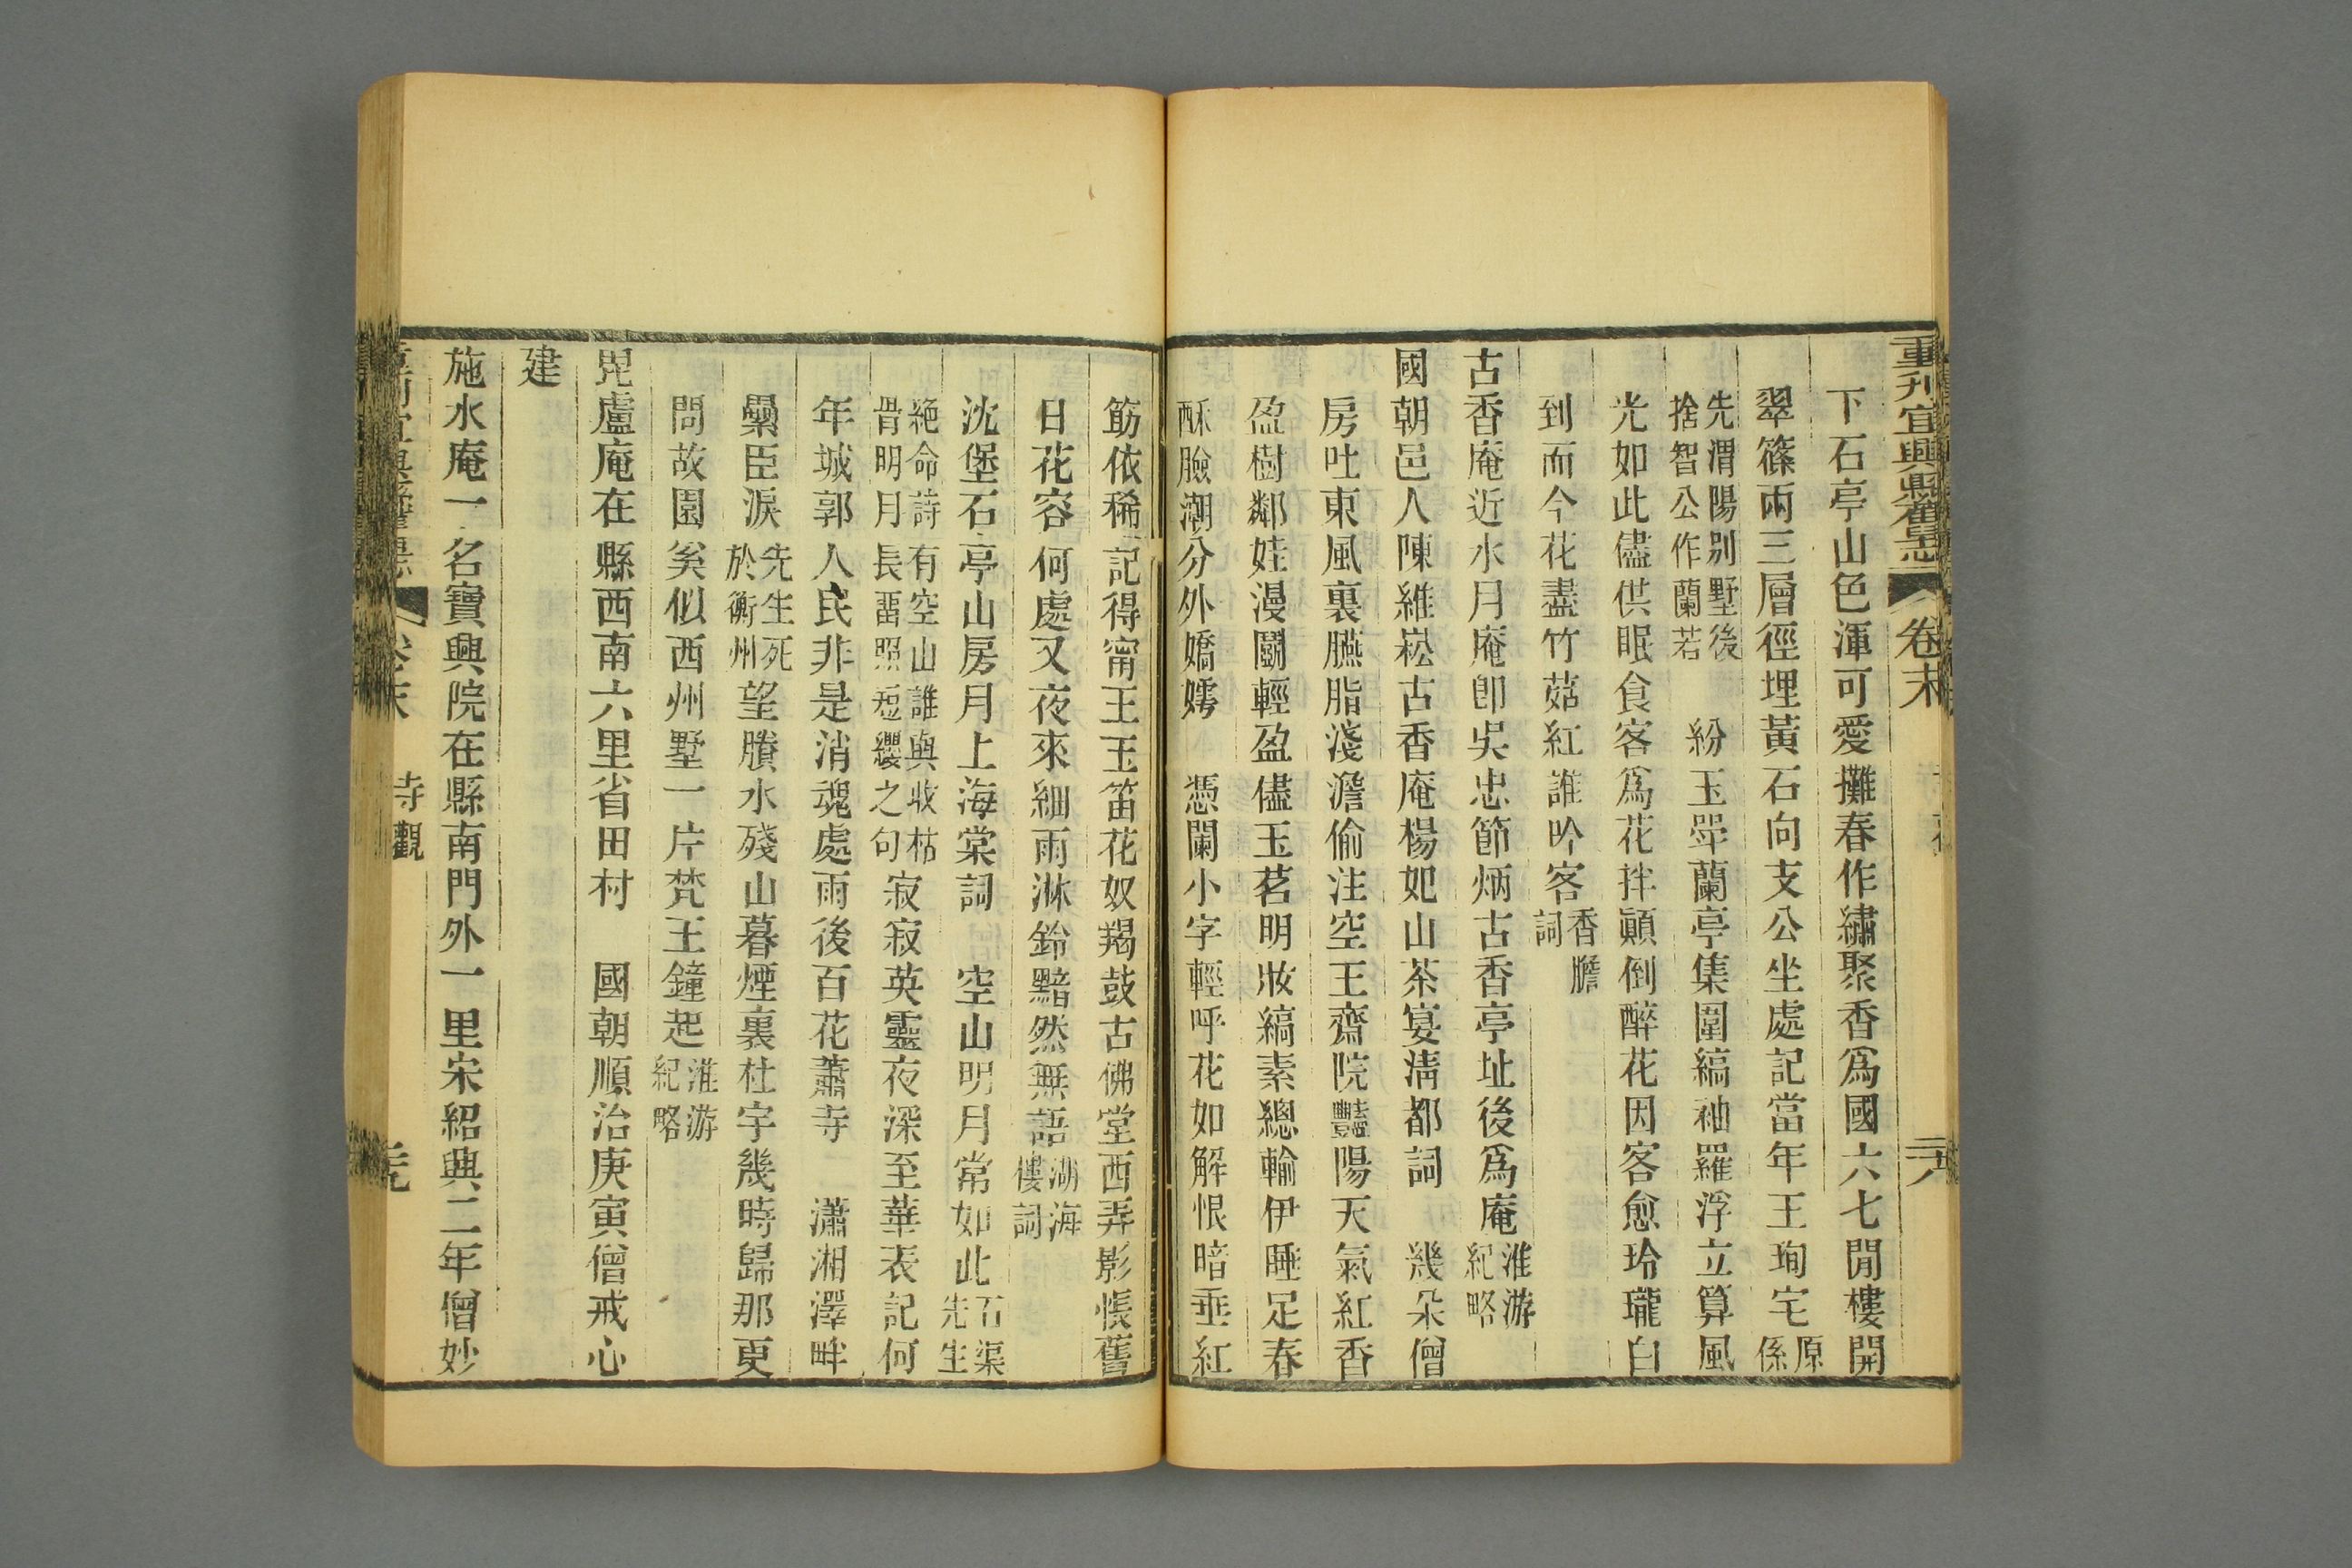 重刋宜興縣舊志 卷末
下石亭山色渾可愛攤春作繡聚香爲國六七閒樓開
翠篠兩三層徑埋黃石向支公坐處記當年王珣宅原係
先渭陽別墅後捨智公作蘭若 紛玉斝蘭亭集圍縞袖羅浮立算風
光如此儘供眠食客爲花拌顚倒醉花因客愈玲瓏白
到而今花盡竹菇紅誰吟客香膽詞
古香庵近水月庵卽吳忠節炳古香亭址後爲庵淮游紀略
國朝邑人陳維崧古香庵楊妃山茶宴淸都詞 幾朵僧
房吐東風裏臙脂淺澹偷注空王齋院豔陽天氣紅香
盈樹鄰娃漫鬭輕盈儘玉茗明妝縞素總輸伊睡足春
酥臉潮分外嬌嫮 憑闌小字輕呼花如解恨暗垂紅
筯依稀記得甯王玉笛花奴羯鼓古佛堂西弄影悵舊
日花容何處又夜來細雨淋鈴黯然無語湖海樓詞
沈堡石亭山房月上海棠詞 空山明月常如此石渠先生
絕命詩有空山誰與收枯骨明月長畱照短纓之句寂寂英靈夜深至華表記何
年城郭人民非是消魂處雨後百花蕭寺 瀟湘澤畔
纍臣淚先生死於衡州望賸水殘山暮煙裏杜宇幾時歸那更
問故園矣似西州墅一片梵王鐘起淮游紀略
毘盧庵在縣西南六里省田村 國朝順治庚寅僧戒心
建
施水庵一名寶興院在縣南門外一里宋紹興二年僧妙
卷末 寺觀